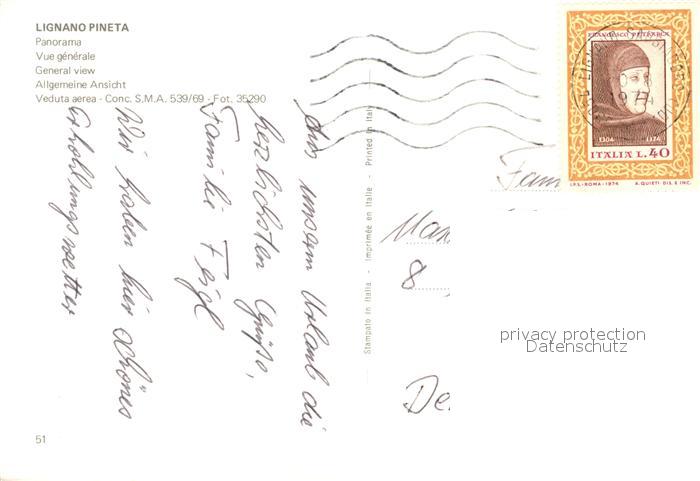 LIGNANO PINETA
Panorama
Vue générale
General view
Allgemeine Ansicht
Veduta aerea - Conc. S.M.A. 539/69 - Fot. 35290
Aus unserm Urlaub die
herzlichsten Grüße,
Familie Feigl
Wir haben hier schönes
Erholungswetter
51
Stampato in Italia - Imprimée en Italie - Printed in Italy
FRANCESCO PETRARCA
1304 1374
ITALIA L. 40
I.P.S.-ROMA-1974 A. QUIETI DIS. E INC.
Fam
8
privacy protection
Datenschutz